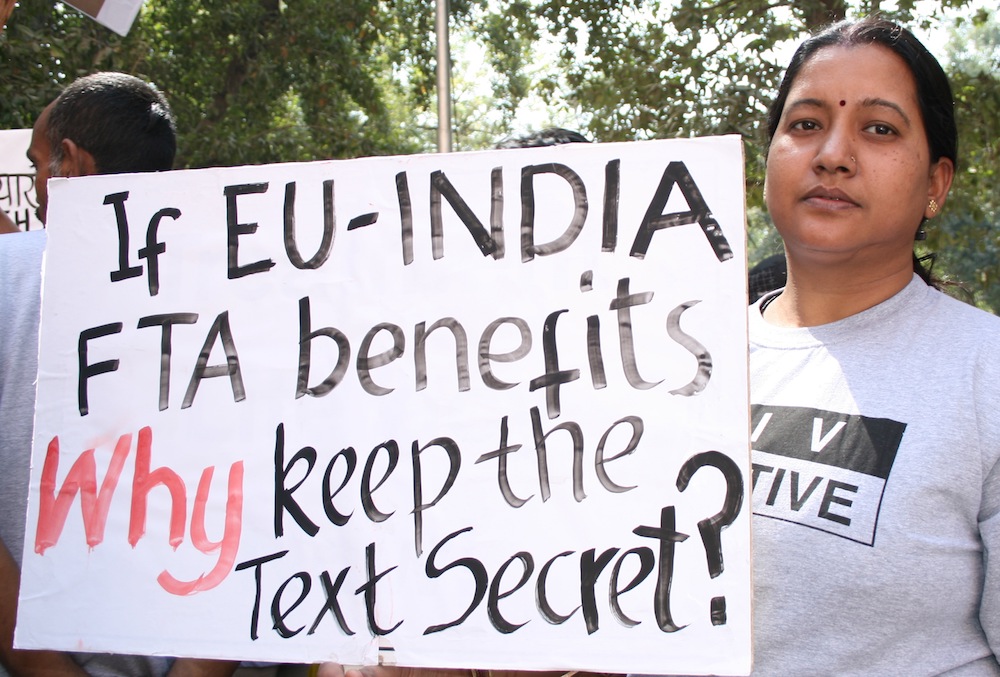 If EU-INDIA
FTA benefits
Why keep the
Text Secret?
I V
TIVE